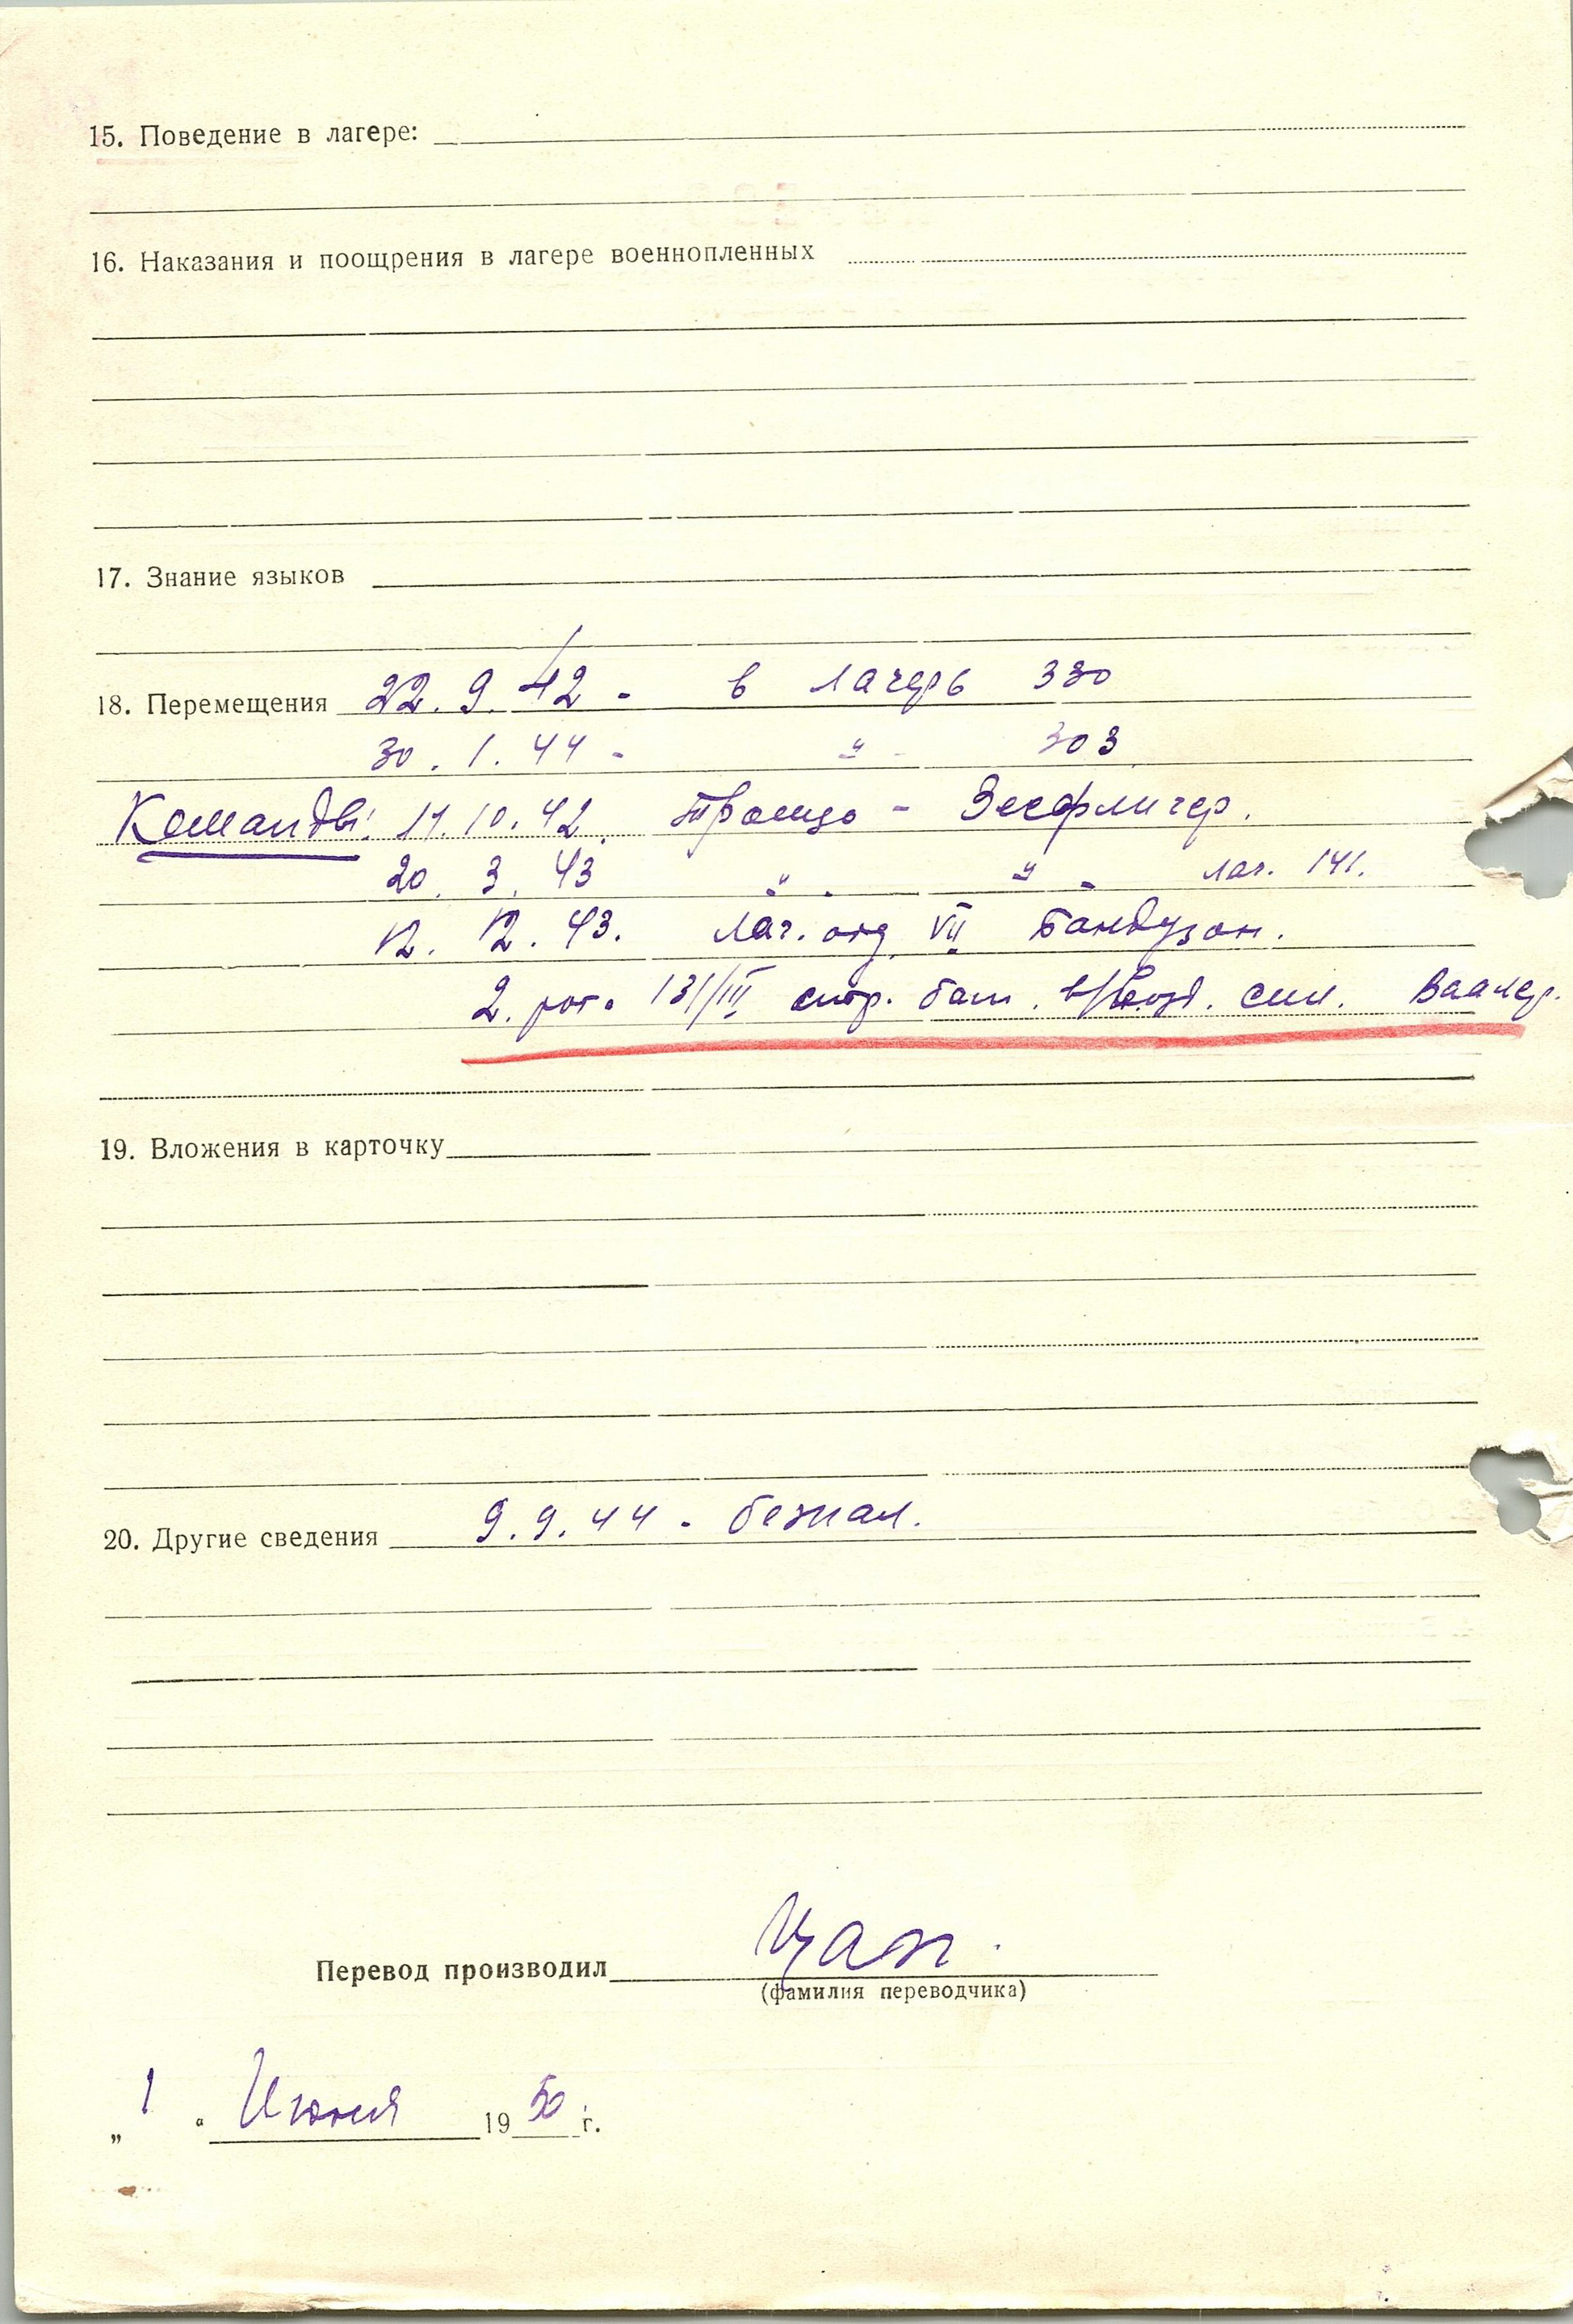 15. Поведение в лагере:
16. Наказания и поощрения в лагере военнопленных
17. Знание языков
18. Перемещения 22. 9. 42 - в лагерь 330
30. 1. 44 - " - 303
Команды: 11. 10. 42.
20. 3. 43 " - " - лаг. 141.
12. 12. 43. лаг. отд. VII
2. рот. 131/III стр. бат.
19. Вложения в карточку
20. Другие сведения 9. 9. 44 - бежал.
Перевод производил Цап.
(фамилия переводчика)
„ 1 " Июня 1950 г.